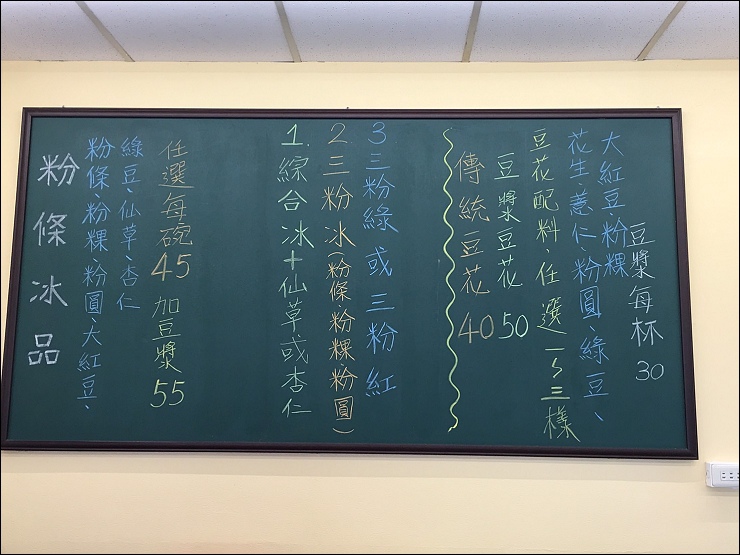 粉條冰品
粉條、粉粿、粉圓、大紅豆、
綠豆、仙草、杏仁
任選每碗45 加豆漿55
1. 綜合冰+仙草或杏仁
2 三粉冰(粉條、粉粿、粉圓)
3 三粉綠或三粉紅
傳統豆花 40
豆漿豆花 50
豆花配料、任選一~三樣
花生、薏仁、粉圓、綠豆、
大紅豆、粉粿
豆漿每杯 30